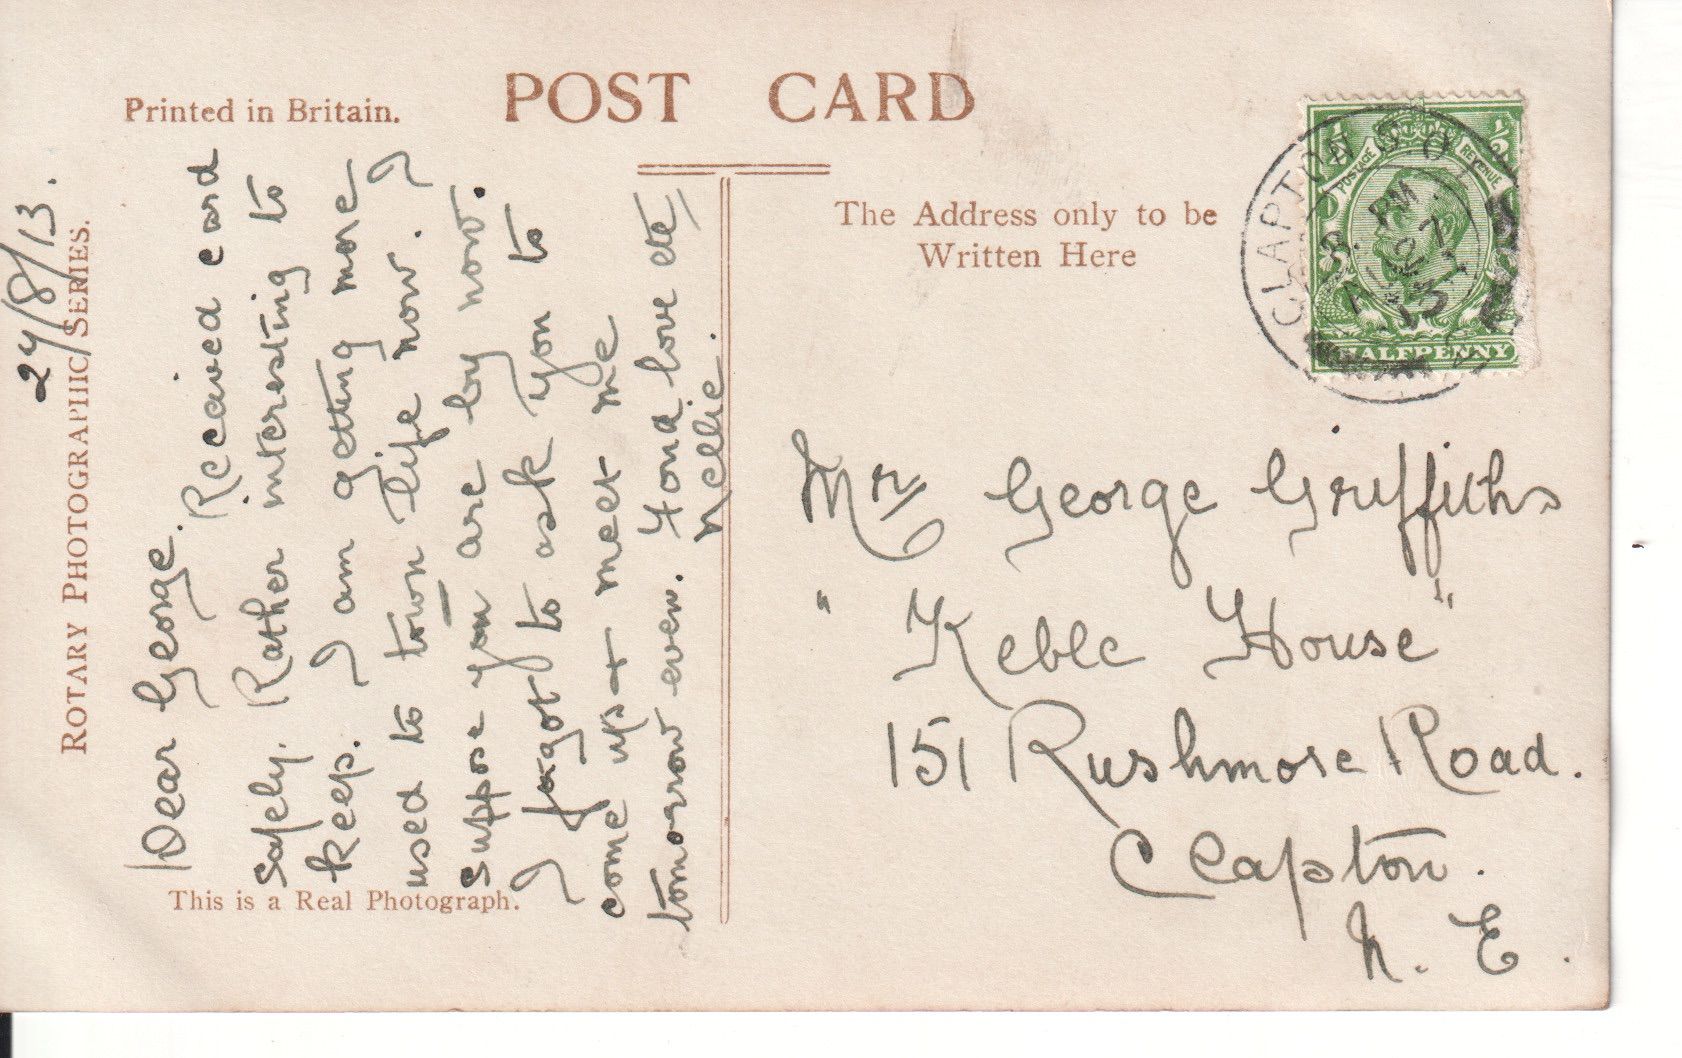 POST CARD
Printed in Britain.
ROTARY PHOTOGRAPHIC SERIES.
This is a Real Photograph.
The Address only to be
Written Here
27/8/13.
Dear George. Received card
safely. Rather interesting to
keep. I am getting more
used to town life now. I
suppose you are by now.
I forgot to ask you to
come up + meet me
tomorrow even. Fond love etc
Nellie.
½ ½
POSTAGE REVENUE
HALFPENNY
CLAPTON
PM
AU 27
13
Mr George Griffiths
"Keble House"
151 Rushmore Road.
Clapton.
N. E.